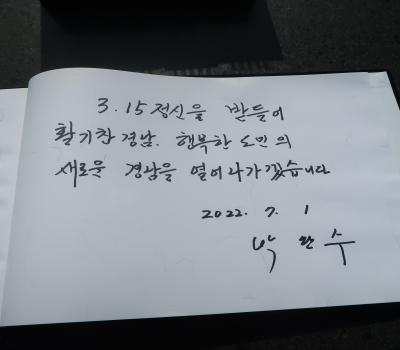 3.15 정신을 받들어
활기찬 경남. 행복한 도민의
새로운 경남을 열어나가겠습니다
2022. 7. 1
박완수